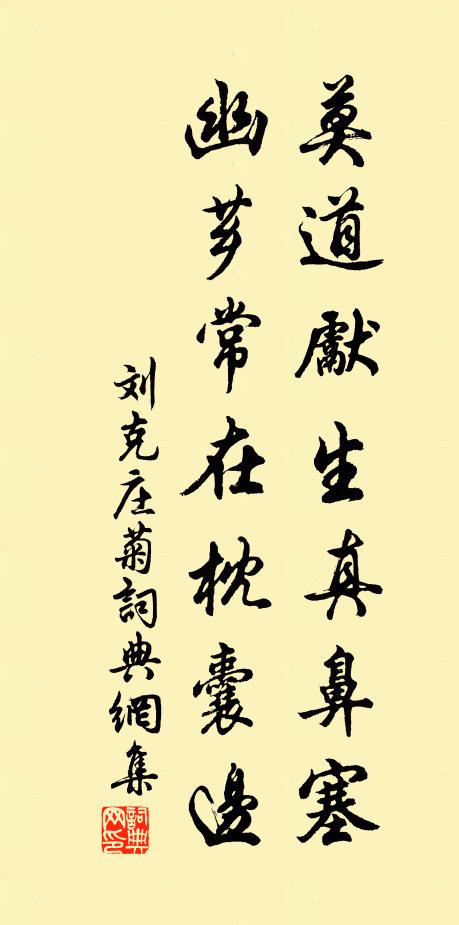 莫道獻生真鼻塞
幽芗常在枕囊邊
刘克庄菊詞典網集
詞典網印